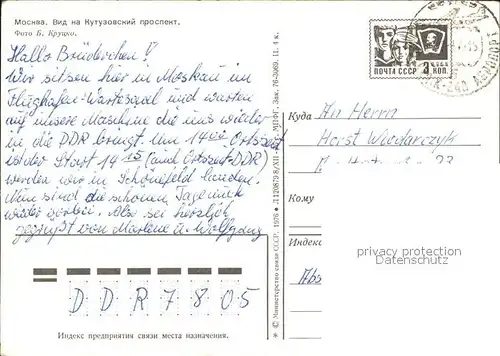 Москва. Вид на Кутузовский проспект.
Фото Б. Круцко.
Hallo Brüderchen!
Wir sitzen hier in Moskau im
Flughafen-Wartesaal und warten
auf unsere Maschine die uns wieder
in die DDR bringt. Um 14 00 Ortszeit
ist der Start 14 15 (auch Ortszeit-DDR)
werden wir in Schönefeld landen.
Nun sind die schönen Tage
wieder vorbei. Also sei herzlich
gegrüßt von Marlene u. Wolfgang
ПОЧТА СССР 3 КОП.
Куда
An Herrn
Horst
Кому
privacy protection
Индекс
Abs
© Министерство связи СССР. 1976
DDR 7805
Индекс предприятия связи места назначения.